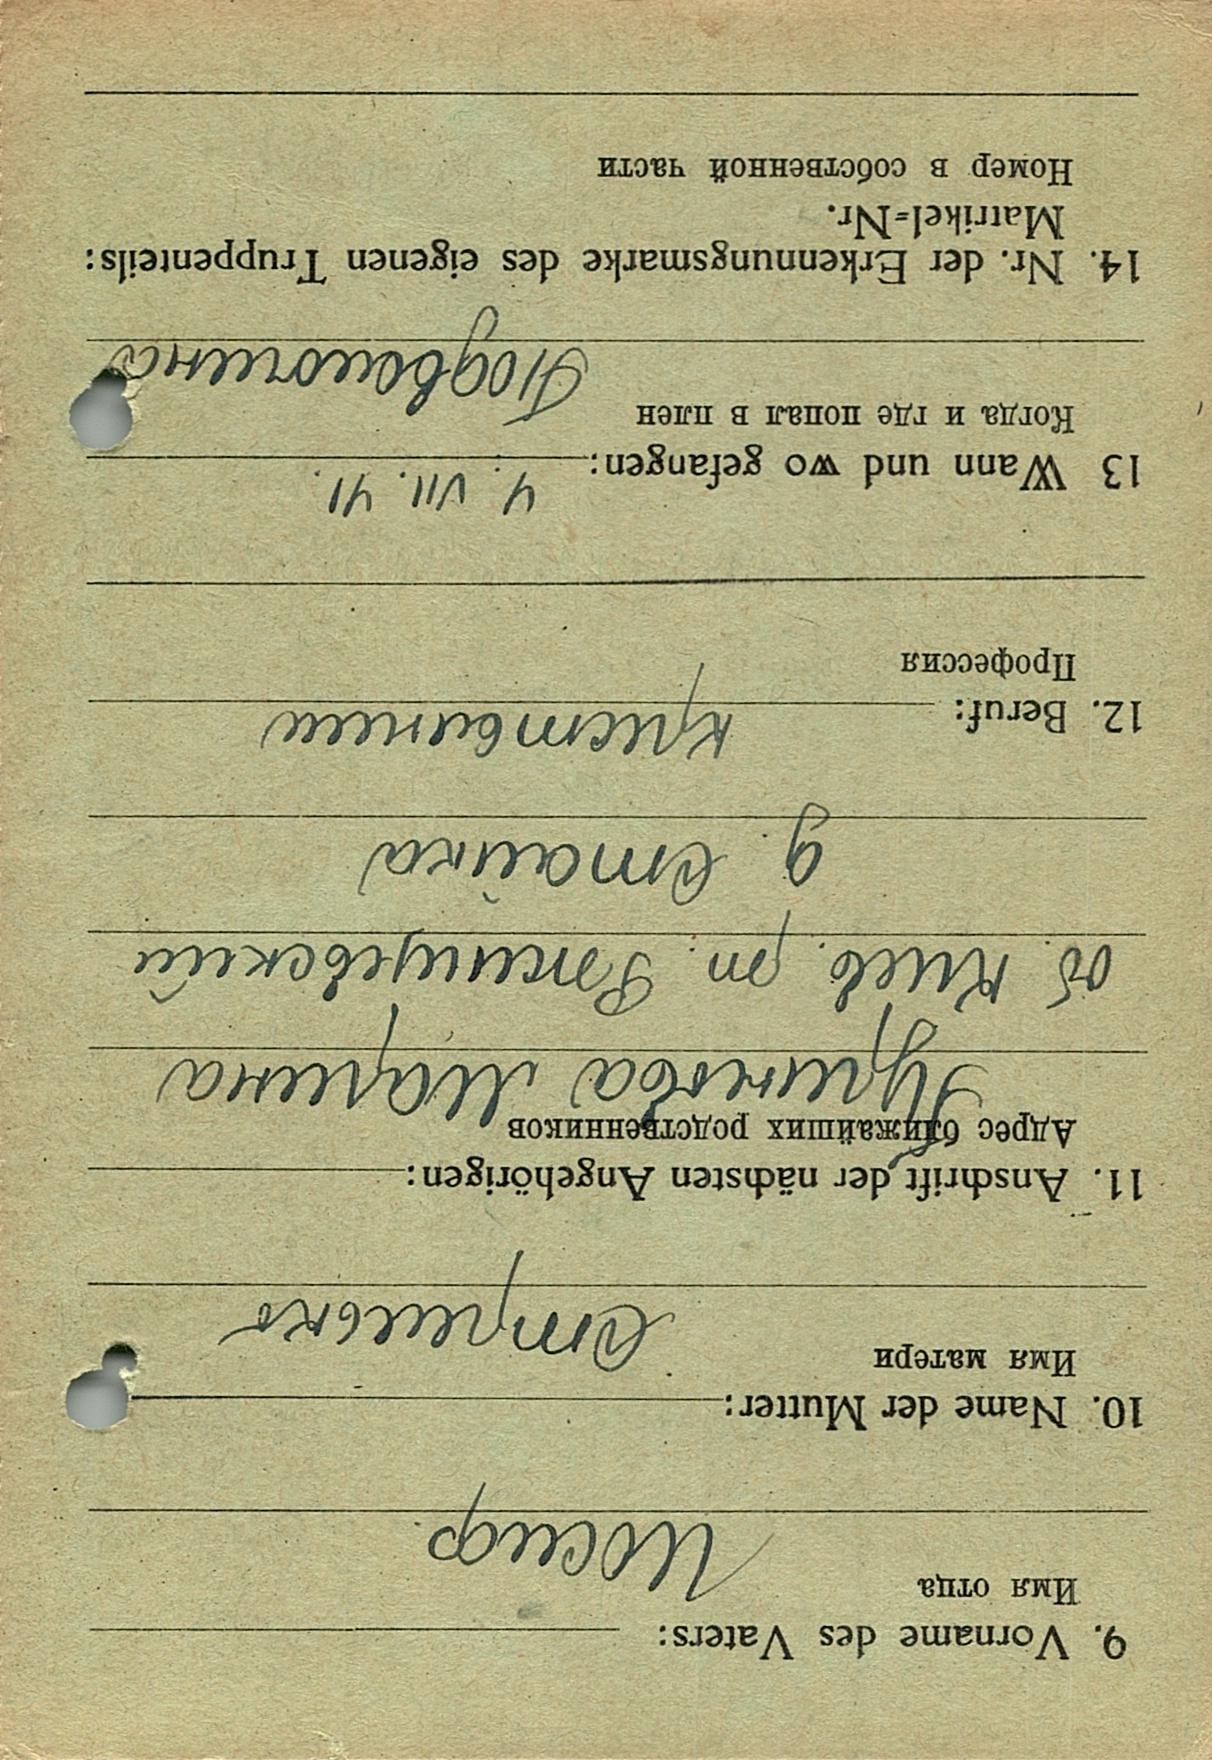 9. Vorname des Vaters:
Имя отца
Иосиф
10. Name der Mutter:
Имя матери
Стрелько
11. Anschrift der nächsten Angehörigen:
Адрес ближайших родственников
Марина
об Киев. рн. Ржищевский
д. Стайка
12. Beruf:
Профессия
13 Wann und wo gefangen:
4. VII. 41.
Когда и где попал в плен
14. Nr. der Erkennungsmarke des eigenen Truppenteils:
Matrikel=Nr.
Номер в собственной части